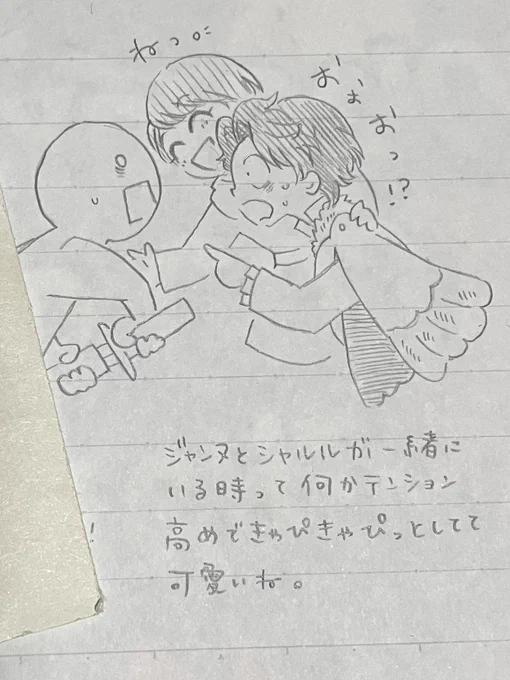 ねっ。
お、お
おっ!?
ジャンヌとシャルルが一緒に
いる時って何かテンション
高めできゃぴきゃぴっとしてて
可愛いね。
!